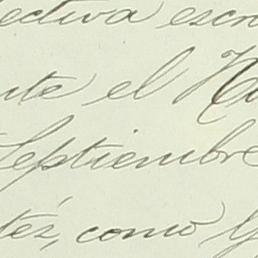 ectiva escri
nte el No
Septiembre
téz, como G